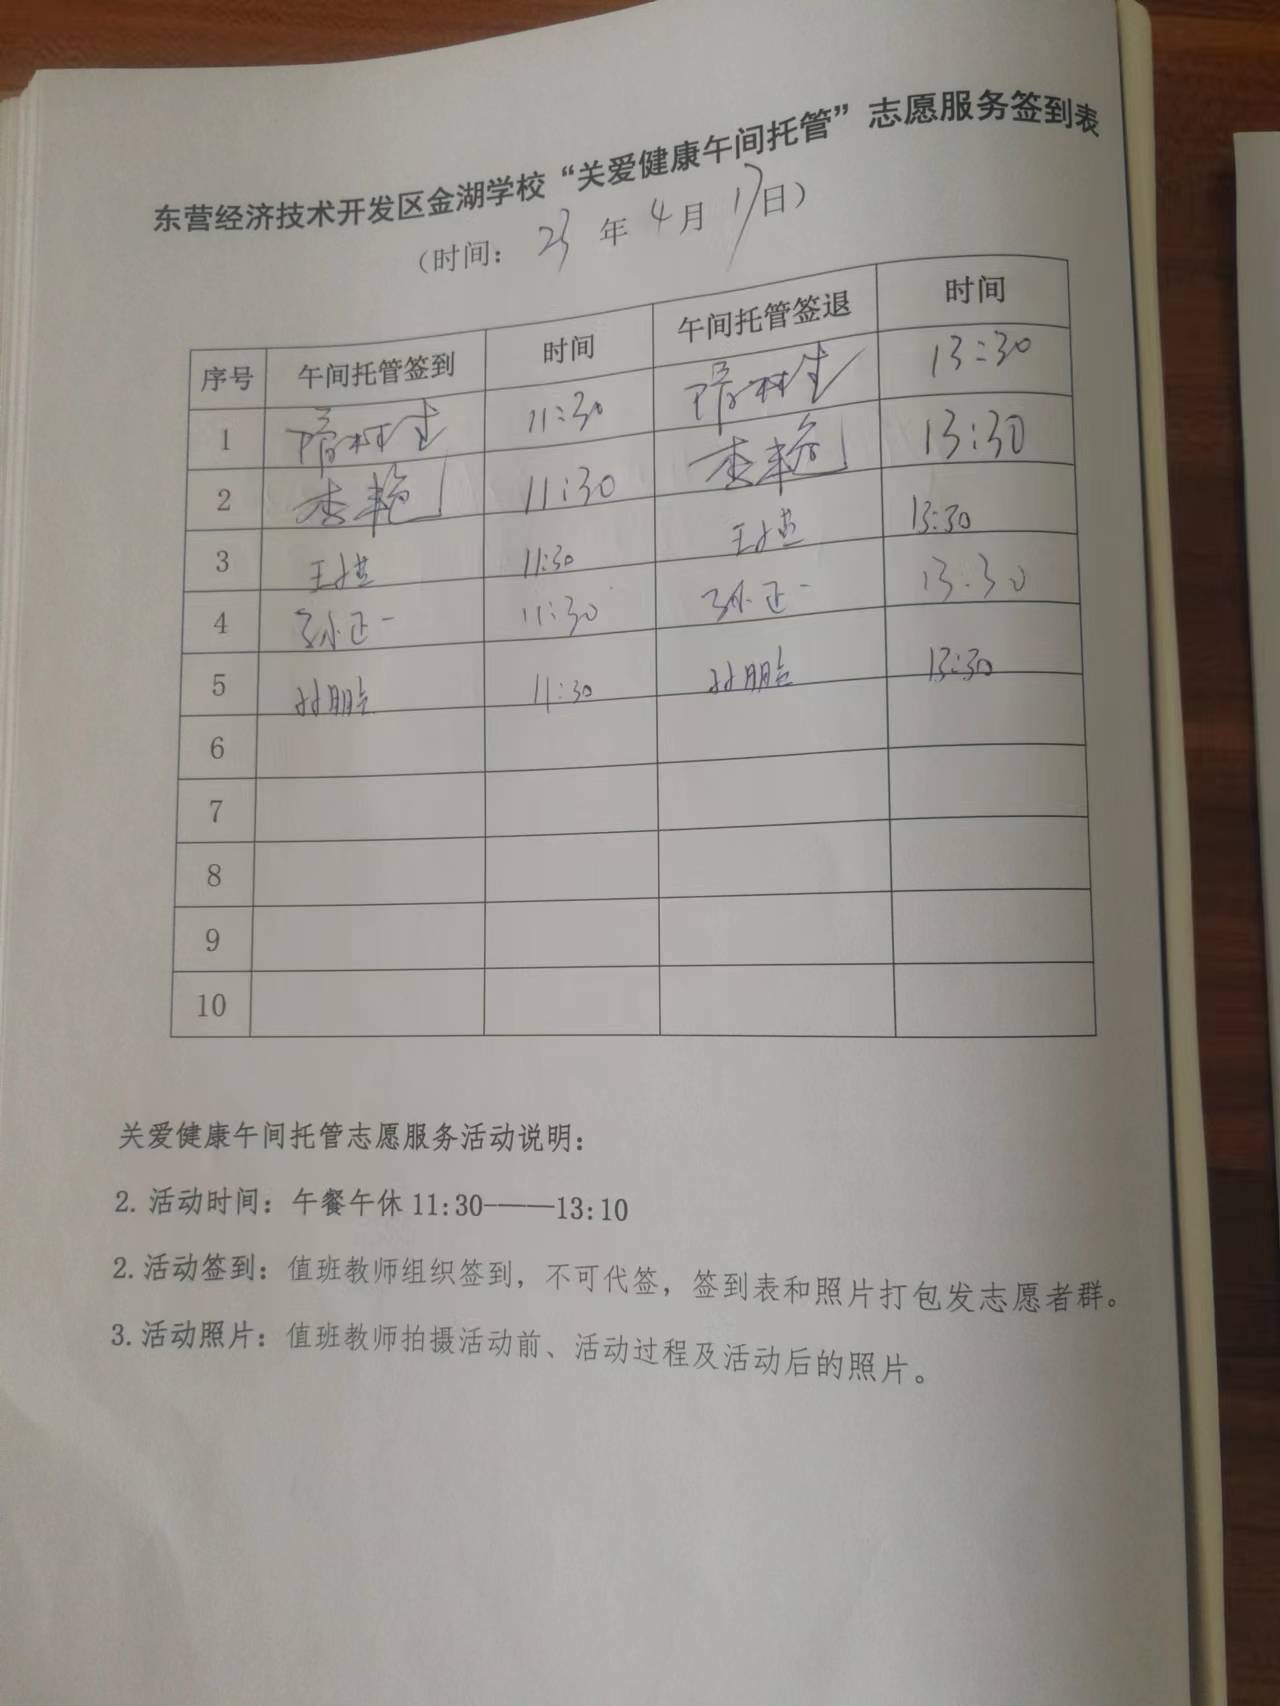 东营经济技术开发区金湖学校“关爱健康午间托管”志愿服务签到表
（时间：23年4月17日）
序号 午间托管签到 时间 午间托管签退 时间
1 11:30 13:30
2 李艳 11:30 李艳 13:30
3 11:30 13:30
4 孙正一 11:30 孙正一 13:30
5 11:30 13:30
6
7
8
9
10
关爱健康午间托管志愿服务活动说明：
2. 活动时间：午餐午休 11:30——13:10
2. 活动签到：值班教师组织签到，不可代签，签到表和照片打包发志愿者群。
3. 活动照片：值班教师拍摄活动前、活动过程及活动后的照片。